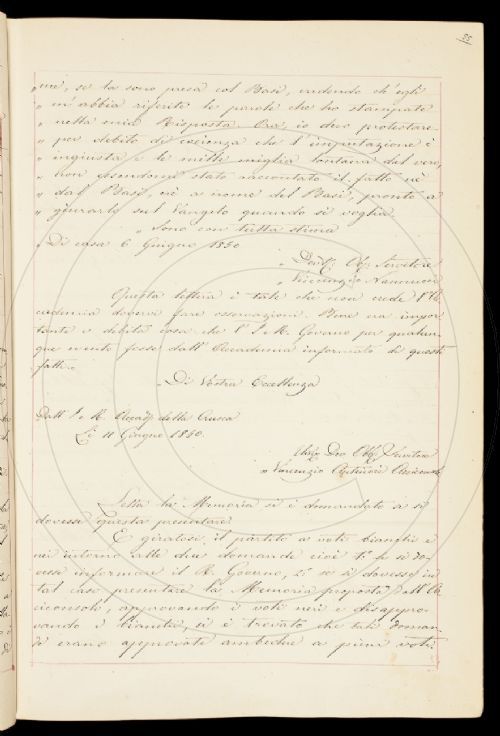 35
" me, se la sono presa col Basi, credendo ch'egli
" m'abbia riferite le parole che ho stampate
" nella mia Risposta. Ora io devo protestare
" per debito di coscienza che l'imputazione è
" ingiusta e le mille miglia lontana dal vero,
" non essendomi stato raccontato il fatto nè
" dal Basi, nè a nome del Basi, pronto a
" giurarlo sul Vangelo quando si voglia.
" Sono con tutta stima
" Di casa 6 Giugno 1850
" Dev. Obb. Servitore
" Vincenzio Nannucci
Questa lettera è tale che non crede l'Ac
cademia dovervi fare osservazioni. Bene era impor
tante e debita cosa che l'I. e R. Governo per qualun
que evento fosse dall'Accademia informato di questi
fatti.
Di Vostra Eccellenza
Dall'I. e R. Accad. della Crusca
Li 11 Giugno 1850.
Dev. Obb. Servitore
Vincenzio Arciconsolo
Letta la Memoria si è domandato se si
dovesse questa presentare.
E giratosi il partito a voti bianchi e
neri intorno alle due domande cioè 1.° se si do-
vesse informare il R. Governo, 2.° se si dovesse in
tal caso presentare la Memoria proposta dall'Ar
ciconsolo, approvando i voti neri e disappro
vando i bianchi, si è trovato che tali doman
de erano approvate ambedue a pieni voti.